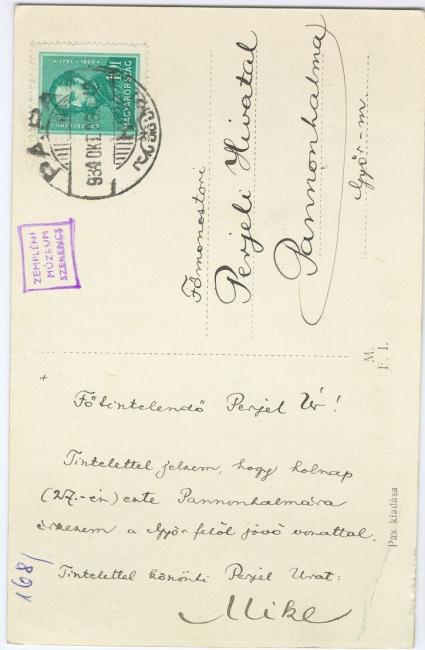 1791-1860
10f
MAGYARORSZÁG
PÁPA
934 OKT
ZEMPLÉNI
MÚZEUM
SZERENCS
Főmonostori
Perjeli Hivatal
Pannonhalma
Győr-m.
M.
F. I.
+
Főtintelendő Perjel Úr!
Tintelettel jelzem, hogy holnap
(27.-én) este Pannonhalmára
érkezem a Győr felől jövő vonattal.
Tintelettel köszönti Perjel Urat:
Mike
168/
Pax kiadása